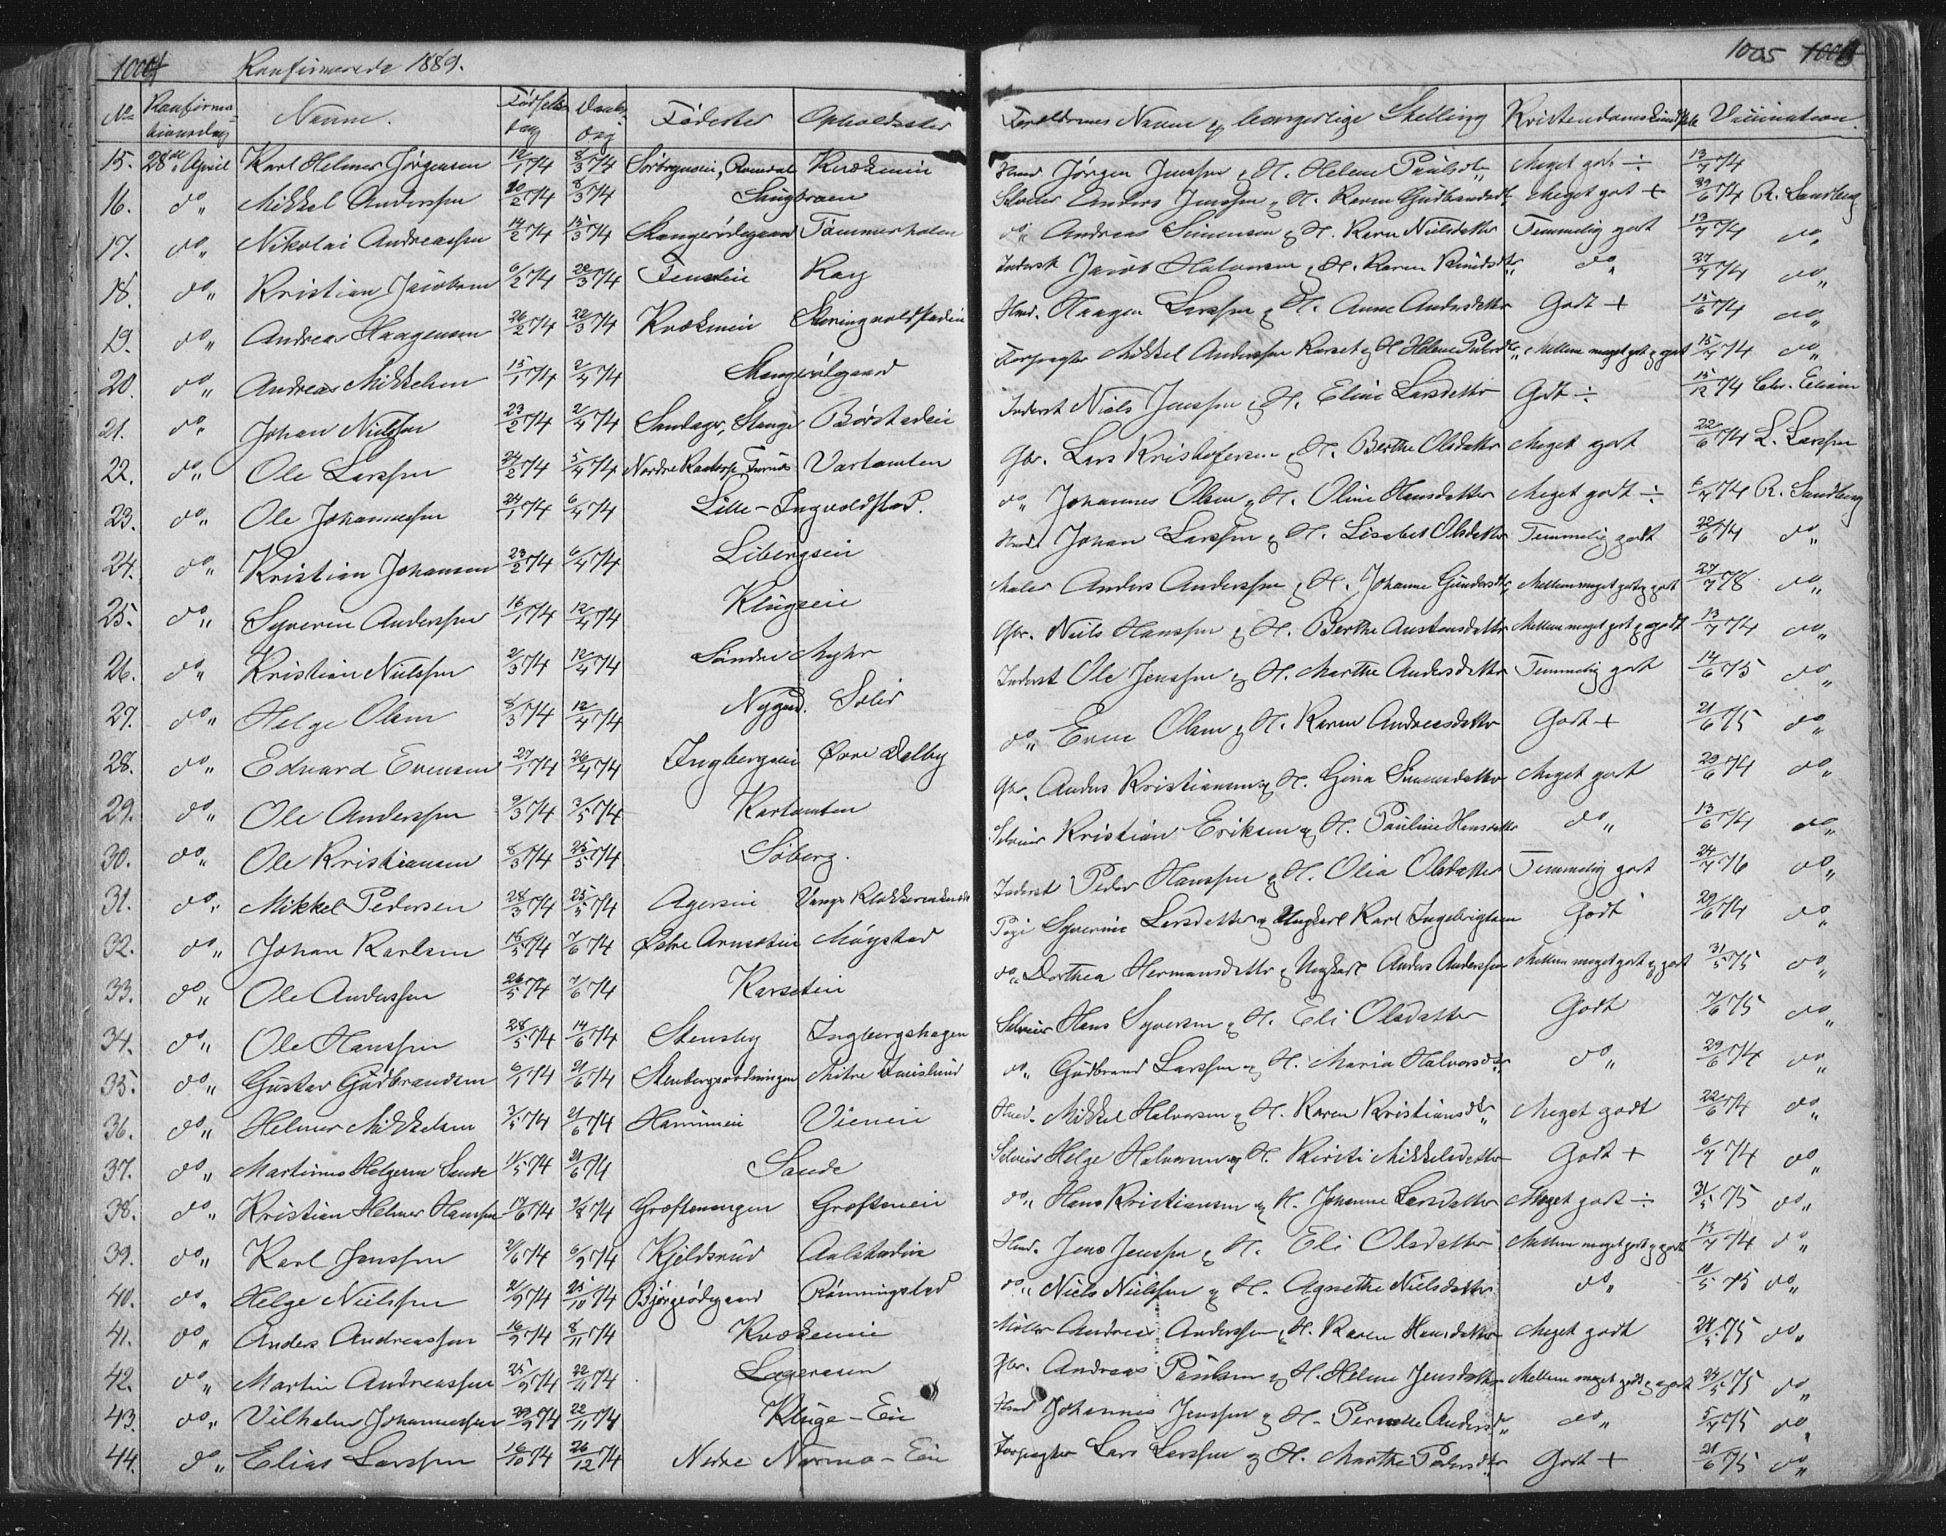 1004 Konfirmerede 1889. 1005
No Konfirmationsdag Navne. Fødselsdag Daabsdag Fødested Opholdssted Forældrenes Navne og borgerlige Stilling Kristendomskundskab Vaccination
15. 28de April Karl Helmer Jørgensen 12/1 74 8/3 74 Romedal Kvækeneie Hmd Jørgen Jenssen & H. Helene Paulsdtr Meget godt ÷ 13/7 74
16. do Mikkel Anderssen 20/2 74 8/3 74 Selveier Anders Jenssen & H. Karen Gudbrandsdtr Meget godt + 6 74 R. Sandberg
17. do Nikolai Andreassen 14/2 74 15/3 74 Stangeødegaard Tømmerholen do Andreas Simensen & H. Karen Nielsdatter Temmelig godt 13/7 74 do
18. do Kristian Jacobsen 6/2 74 20/3 74 Kay Inderst Jacob Halvorsen & H. Karen Knudsdtr do 27/7 74 do
19. do Andreas Haagensen 26/2 74 22/3 74 Kvækeneie Hmd. Haagen Larssen & H. Anne Andersdatter Godt + 15/6 74 do
20. do Andreas Mikkelsen 15/1 74 2/4 74 Stangeødegaard Forpagter Mikkel Anderssen Karset & H Helene Pedersdtr Mellem meget godt & godt 15/7 74 do
21. do Johan Nielssen 23/2 74 2/4 74 Sandager, Stange Børstadeie Inderst Niels Jenssen & H. Eline Larsdatter Godt ÷ 15/12 74 Chr.
22. do Ole Larssen 24/2 74 5/4 74 Nordre Vartomten Gbr. Lars Kristofersen & H. Berthe Olsdatter Meget godt 22/6 74 L. Larssen
23. do Ole Johannessen 24/1 74 6/4 74 Lille-Ingvoldstad. do Johannes Olsen & H. Oline Hansdatter Meget godt ÷ 6/7 74 R. Sandberg
24. do Kristian Johansen 23/2 74 6/4 74 Libergseie Hmd. Johan Larssen & H. Lisabet Olsdatter Temmelig godt 22/6 74 do
25. do Syveren Anderssen 16/1 74 12/4 74 Klugseie Maler Anders Anderssen & H. Johanne Gundersdtr Mellem meget godt & godt 27/7 78 do
26. do Kristian Nielssen 2/3 74 12/4 74 Søndre Gbr. Niels Hanssen & H. Berthe Austensdatter Mellem meget godt & godt 13/7 74 do
27. do Helge Olsen 8/3 74 12/4 74 Nygaard. Solid Inderst Ole Jenssen & H. Marthe Andersdatter Temmelig godt 14/6 75 do
28. do Edvard Evensen 27/1 74 26/4 74 Ingbergseie Øvre Dalby do Even Olsen & H. Karen Andreasdatter Godt + 21/6 75 do
29. do Ole Anderssen 9/3 74 3/5 74 Kartomten Gbr. Anders Kristiansen & H. Gina Simensdatter Meget godt 29/6 74 do
30. do Ole Kristiansen 8/3 74 25/5 74 Søberg. Selveier Kristian Eriksen & H. Pauline Hansdatter do 13/6 74 do
31. do Mikkel Pedersen 28/3 74 25/5 74 Agerseie Vangs Klokkerenkesæde Inderst Peder Hanssen & H. Olia Olsdatter Temmelig godt 24/7 76 do
32. do Johan Karlsen 15/5 74 7/6 74 Østre Møystad Pige Syverine Larsdatter & Ungkarl Karl Ingebrigtsen Godt 29/6 74 do
33. do Ole Anderssen 26/5 74 7/6 74 Karseteie do Dorthea Hermansdatter & Ungkarl Anders Anderssen Mellem meget godt & godt 31/5 75 do
34. do Ole Hanssen 28/5 74 14/6 74 Stensby Ingbergshagen Selveier Hans Syversen & H. Eli Olsdatter Godt 7/6 75 do
35. do Gustav Gudbrandsen 6/1 74 21/6 74 Stenbergsrodningen Mitre do Gudbrand Larssen & H. Maria Halvorsdtr do 29/6 74 do
36. do Helmer Mikkelsen 3/5 74 21/6 74 Vieneie Hmd. Mikkel Halvorsen & H. Karen Kristiansdtr Meget godt 22/6 74 do
37. do Martinus Helgesen Sande 11/5 74 21/6 74 Sande Selveier Helge Halvorsen & H. Kirsti Mikkelsdatter Godt + 6/7 74 do
38. do Kristian Helmer Hanssen 17/6 74 2/8 74 Grøftenengen Grøfteneie do Hans Kristiansen & H. Johanne Larsdatter Meget godt ÷ 31/5 75 do
39. do Karl Jenssen 21/6 74 6/9 74 Kjeldsrud Aalstadeie Hmd. Jens Jenssen & H. Eli Olsdatter Mellem meget godt & godt 13/7 74 do
40. do Helge Nielssen 2/9 74 25/10 74 Bjørgeødegaard Rømmingstad do Niels Nielssen & H. Agnethe Nielsdatter do 11/5 75 do
41. do Anders Andreassen 16/9 74 8/11 74 Kvækeneie Møller Andreas Anderssen & H. Karen Hansdatter Meget godt 24/5 75 do
42. do Martin Andreassen 25/9 74 22/11 74 Gbr. Andreas Paulsen & H. Helene Jensdatter Mellem meget godt & godt 24/5 75 do
43. do Vilhelm Johannessen 29/9 74 22/11 74 Kluge-Eie Hmd Johannes Jenssen & H. Pernille Andersdtr do 5/7 75 do
44. do Elias Larssen 16/10 74 26/12 74 Nedre Narmo-Eie Forpagter Lars Larssen & H. Marthe Pedersdtr Godt + 21/6 75 do